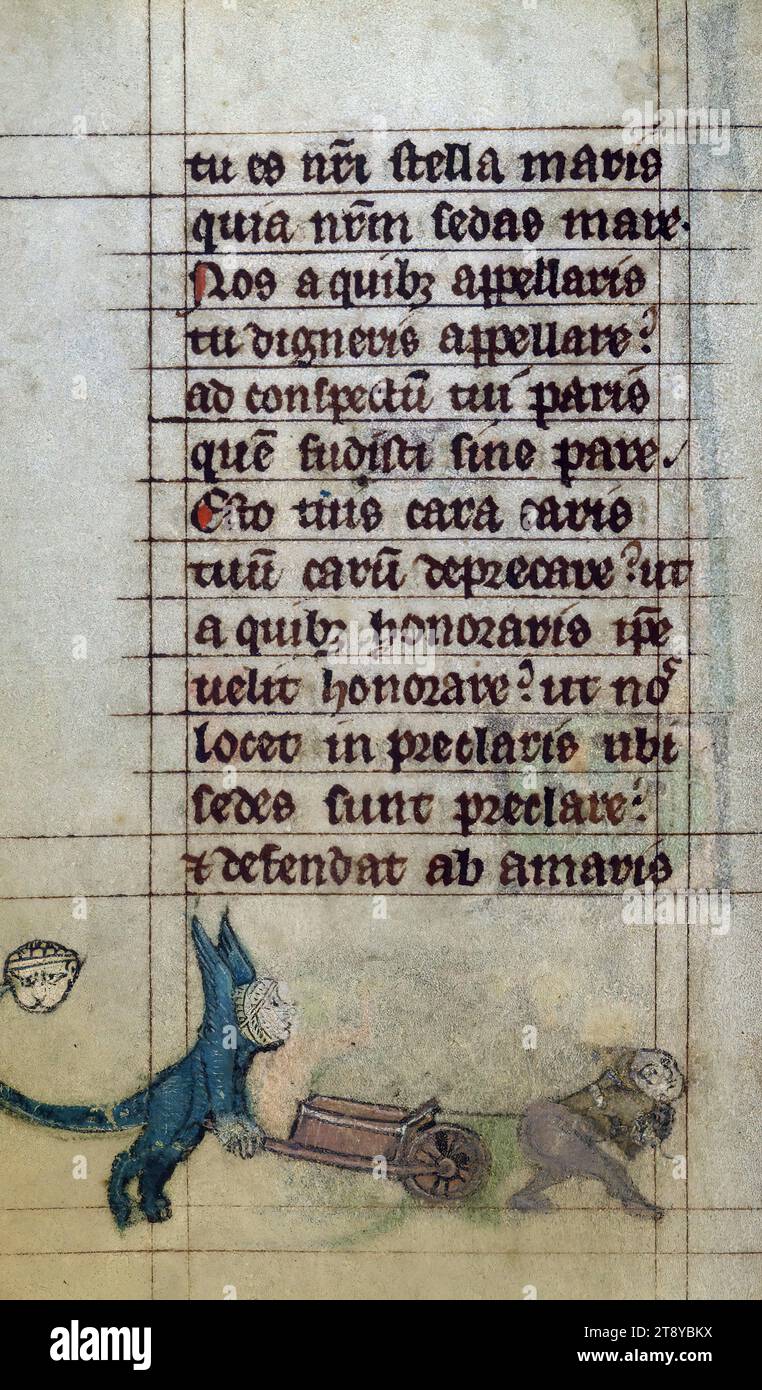 tu es nr̄i stella maris
quia nr̄m sedas mare.
Nos a quibꝫ appellaris
tu digneris appellare?
ad conspectū tui paris
quē fudisti sine pare /
Esto tuis cara caris
tuū carū deprecare? ut
a quibꝫ honoraris ip̄e
uelit honorare? ut nos
locet in preclaris ubi
sedes sunt preclare?
⁊ defendat ab amaris
alamy
alamy
alamy
alamy
Image ID: 2T8YBKX
www.alamy.com